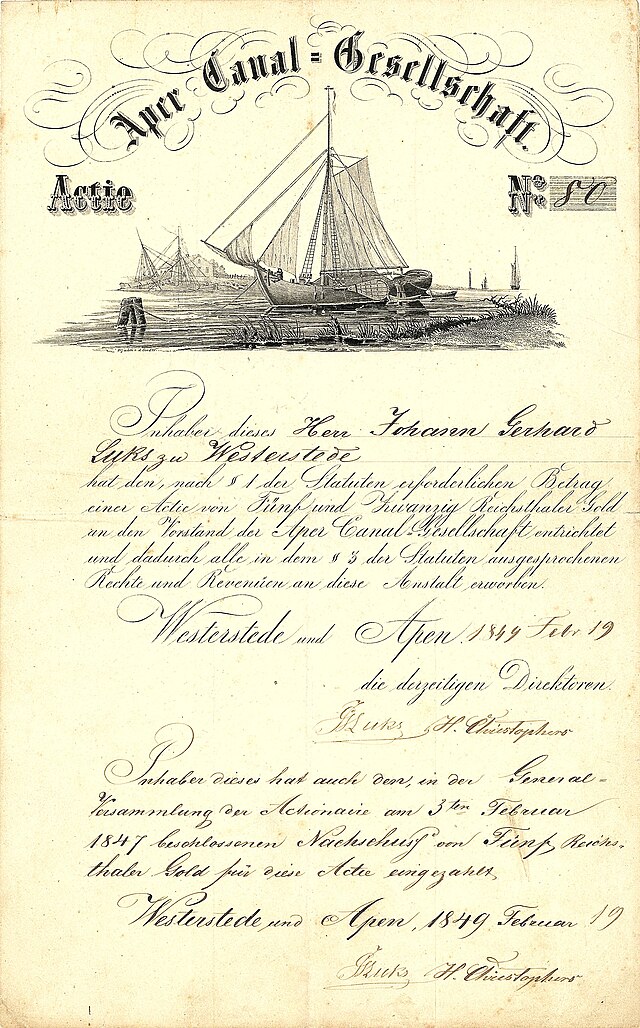 Aper Canal=Gesellschaft.
Actie
No. 80
Inhaber dieses Herr Johann Gerhard
Luks zu Westerstede
hat den, nach § 1 der Statuten erforderlichen Betrag
einer Actie von Fünf und Zwanzig Reichsthaler Gold
an den Vorstand der Aper Canal=Gesellschaft entrichtet
und dadurch alle in dem § 3 der Statuten ausgesprochenen
Rechte und Revenüen an diese Anstalt erworben.
Westerstede und Apen. 1849 Febr 19
die derzeitigen Direktoren.
Luks H. Christophers
Inhaber dieses hat auch den, in der General=
Versammlung der Actionaire am 3ten Februar
1847 beschlossenen Nachschuß von Fünf Reichs=
thaler Gold für diese Actie eingezahlt
Westerstede und Apen, 1849 Februar 19
Luks H. Christophers